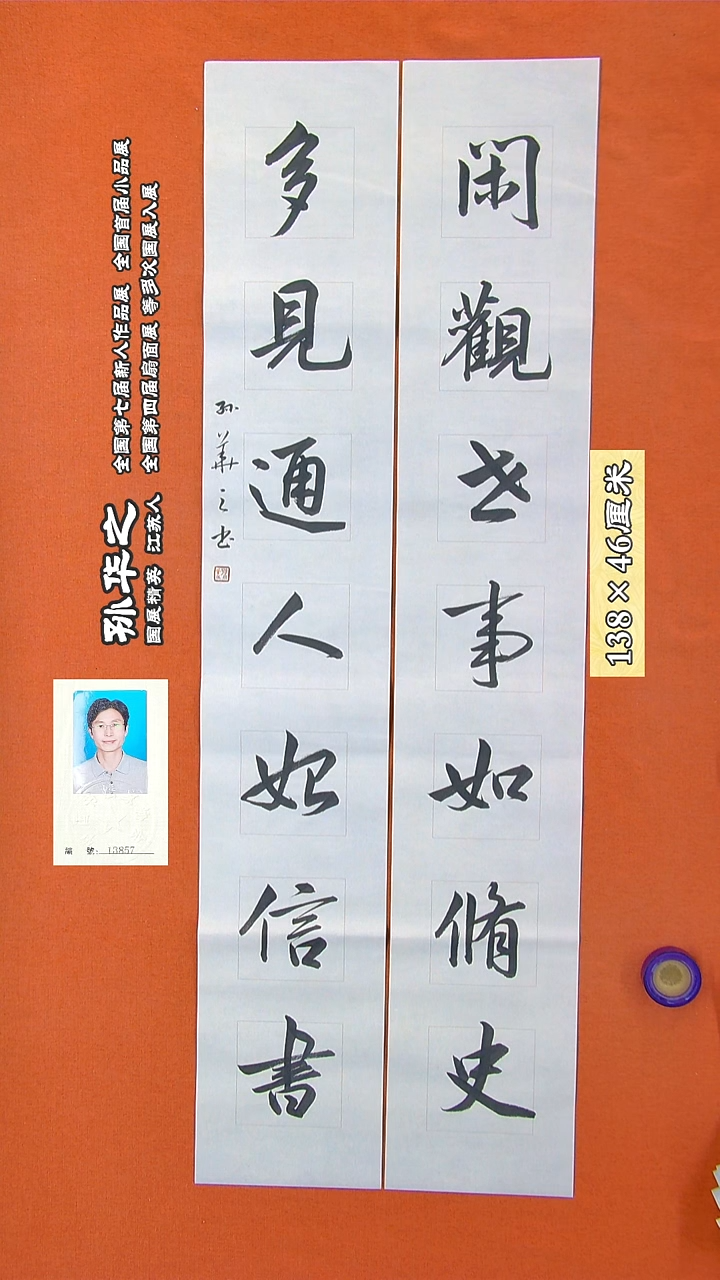 閑觀世事如脩史
多見通人始信書
孙華之书
孙华之
国展精英 江苏人
全国第七届新人作品展 全国首届小品展
全国第四届扇面展 等多次国展入展
138×46厘米
編 號: 13857